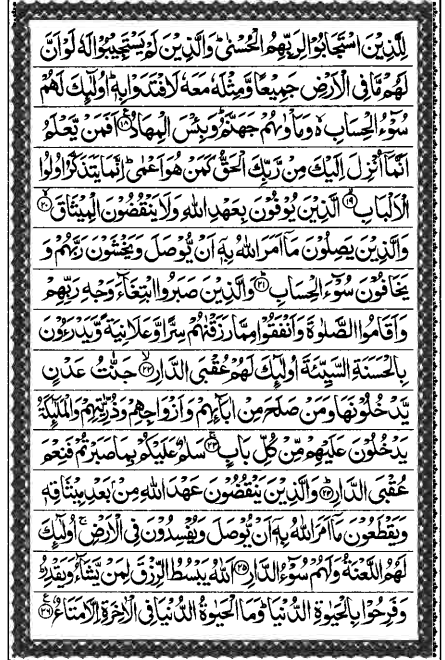 لِلَّذِیْنَ اسْتَجَابُوْا لِرَبِّهِمُ الْحُسْنٰیؕ وَالَّذِیْنَ لَمْ یَسْتَجِیْبُوْا لَهٗ لَوْ اَنَّ
لَهُمْ مَّا فِی الْاَرْضِ جَمِیْعًا وَّمِثْلَهٗ مَعَهٗ لَافْتَدَوْا بِهٖؕ اُولٰٓئِكَ لَهُمْ
سُوْٓءُ الْحِسَابِ ۙ وَمَاْوٰىهُمْ جَهَنَّمُؕ وَبِئْسَ الْمِهَادُ ﴿۱۸﴾ اَفَمَنْ یَّعْلَمُ
اَنَّمَاۤ اُنْزِلَ اِلَیْكَ مِنْ رَّبِّكَ الْحَقُّ كَمَنْ هُوَ اَعْمٰیؕ اِنَّمَا یَتَذَكَّرُ اُولُوا
الْاَلْبَابِ ﴿۱۹﴾ الَّذِیْنَ یُوْفُوْنَ بِعَهْدِ اللّٰهِ وَلَا یَنْقُضُوْنَ الْمِیْثَاقَ ﴿۲۰﴾
وَالَّذِیْنَ یَصِلُوْنَ مَاۤ اَمَرَ اللّٰهُ بِهٖۤ اَنْ یُّوْصَلَ وَیَخْشَوْنَ رَبَّهُمْ وَ
یَخَافُوْنَ سُوْٓءَ الْحِسَابِ ﴿۲۱﴾ وَالَّذِیْنَ صَبَرُوا ابْتِغَآءَ وَجْهِ رَبِّهِمْ
وَاَقَامُوا الصَّلٰوةَ وَاَنْفَقُوْا مِمَّا رَزَقْنٰهُمْ سِرًّا وَّعَلَانِیَةً وَّیَدْرَءُوْنَ
بِالْحَسَنَةِ السَّیِّئَةَ اُولٰٓئِكَ لَهُمْ عُقْبَی الدَّارِ ﴿۲۲﴾ جَنّٰتُ عَدْنٍ
یَّدْخُلُوْنَهَا وَمَنْ صَلَحَ مِنْ اٰبَآئِهِمْ وَاَزْوَاجِهِمْ وَذُرِّیّٰتِهِمْ وَالْمَلٰٓئِكَةُ
یَدْخُلُوْنَ عَلَیْهِمْ مِّنْ كُلِّ بَابٍ ﴿۲۳﴾ سَلٰمٌ عَلَیْكُمْ بِمَا صَبَرْتُمْ فَنِعْمَ
عُقْبَی الدَّارِ ﴿۲۴﴾ وَالَّذِیْنَ یَنْقُضُوْنَ عَهْدَ اللّٰهِ مِنْۢ بَعْدِ مِیْثَاقِهٖ
وَیَقْطَعُوْنَ مَاۤ اَمَرَ اللّٰهُ بِهٖۤ اَنْ یُّوْصَلَ وَیُفْسِدُوْنَ فِی الْاَرْضِ ۙ اُولٰٓئِكَ
لَهُمُ اللَّعْنَةُ وَلَهُمْ سُوْٓءُ الدَّارِ ﴿۲۵﴾ اَللّٰهُ یَبْسُطُ الرِّزْقَ لِمَنْ یَّشَآءُ وَیَقْدِرُؕ
وَفَرِحُوْا بِالْحَیٰوةِ الدُّنْیَاؕ وَمَا الْحَیٰوةُ الدُّنْیَا فِی الْاٰخِرَةِ اِلَّا مَتَاعٌ ﴿۲۶﴾